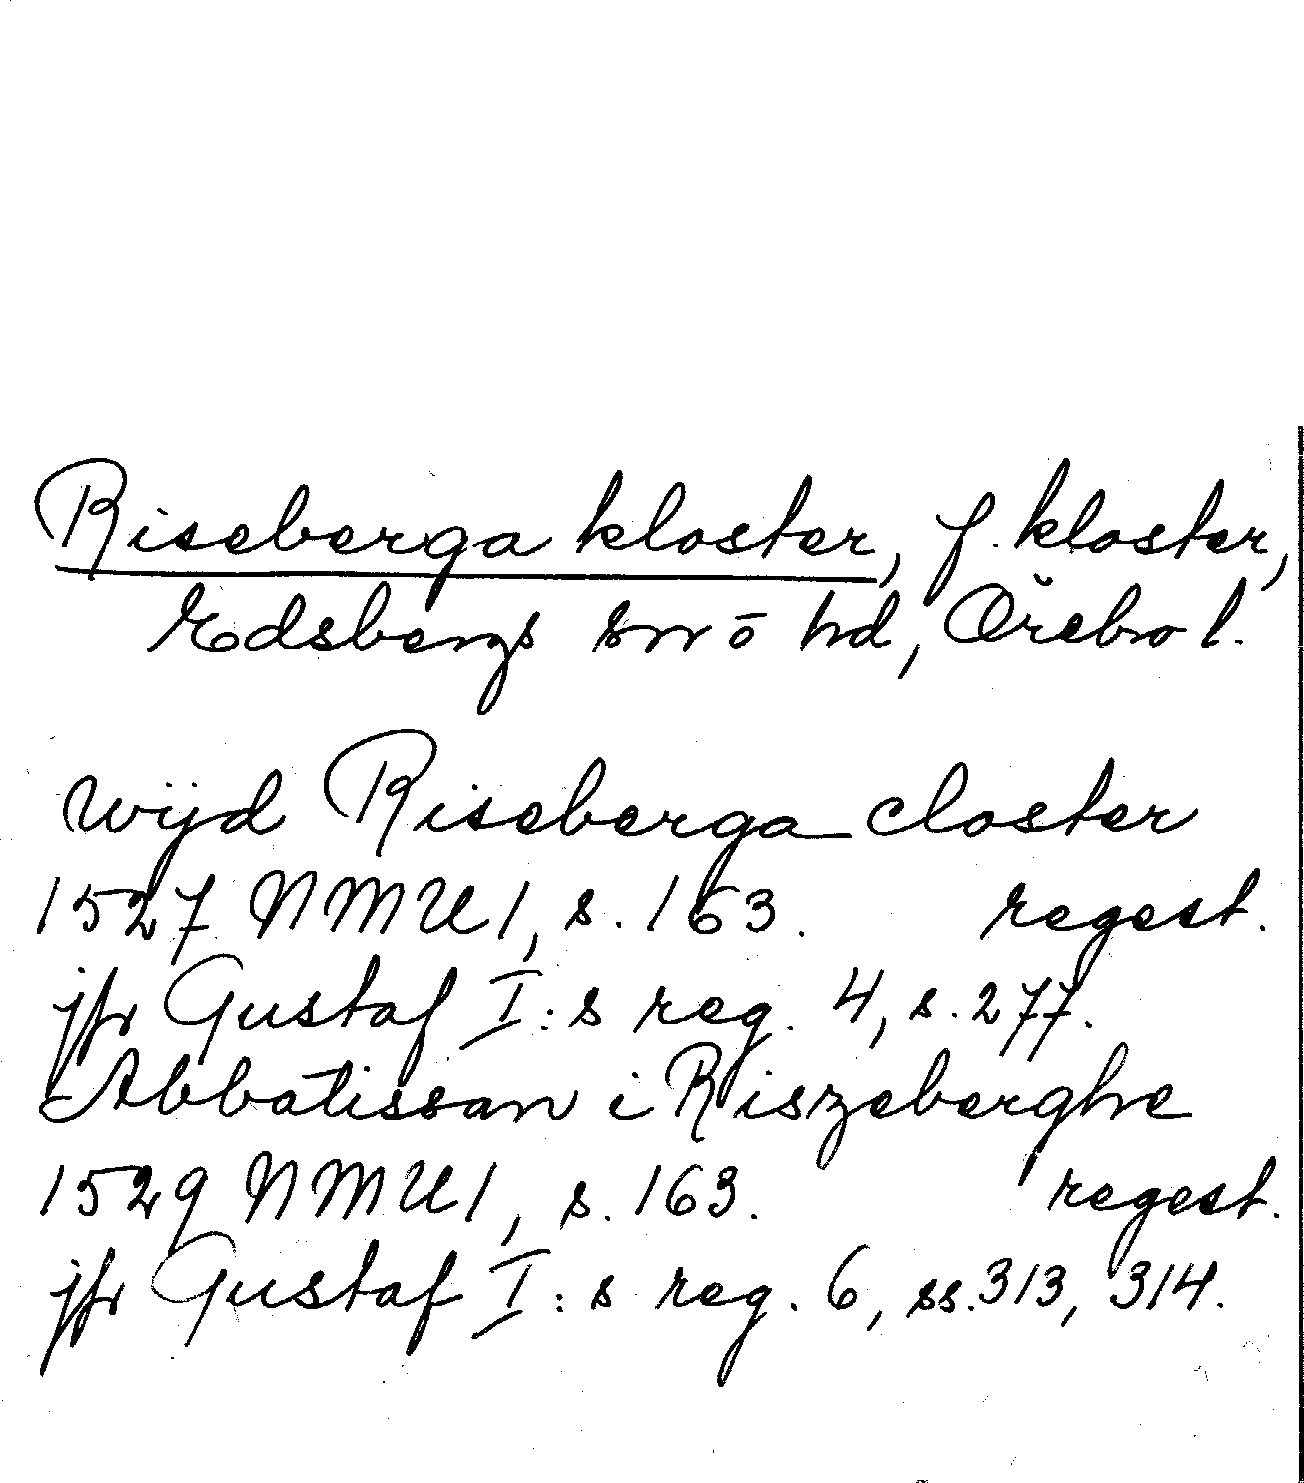 Riseberga kloster, f. kloster,
Edsbergs sn o hd, Örebro l.
wijd Riseberga closter
1527 NMU1, s. 163. regest.
jfr Gustaf I:s reg. 4, s. 277.
Abbatissan i Riszeberghe
1529 NMU1, s. 163. regest.
jfr Gustaf I:s reg. 6, ss. 313, 314.